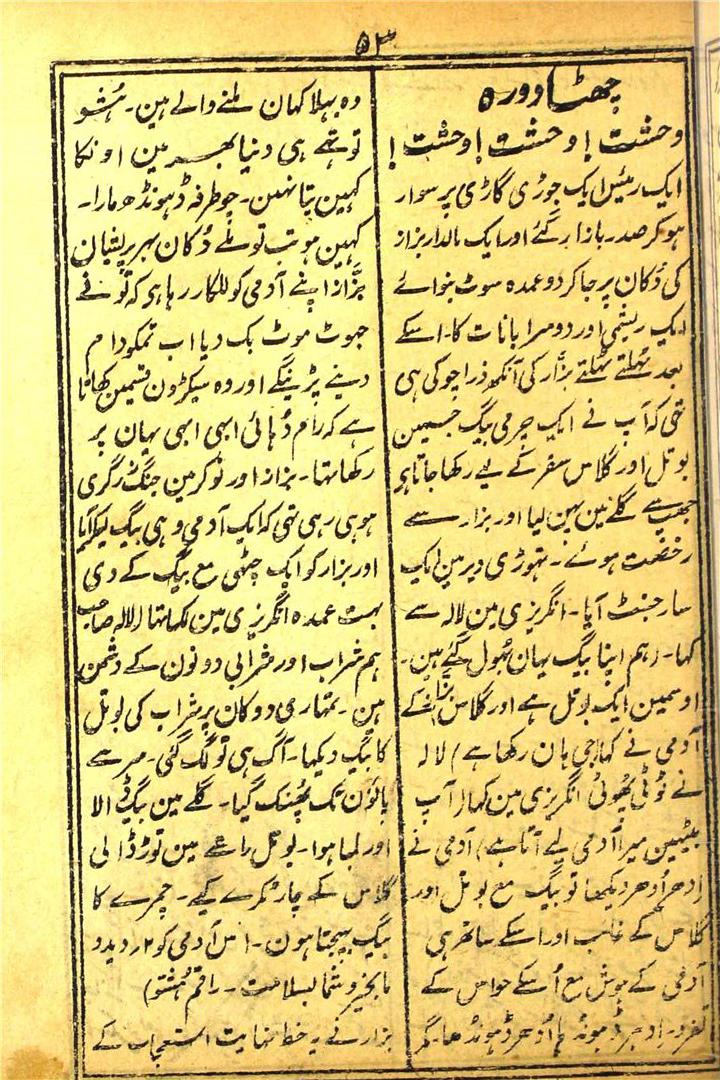 ۵۳
چھٹا دورہ
وحشت! وحشت! وحشت!
ایک رئیس ایک جوڑی گاڑی پر سوار
ہوکر صدر بازار گئے اور ایک مالدار بزاز
کی دُکان پر جاکر دو عمدہ سوٹ بنوائے
ایک ریشمی اور دوسرا بانات کا۔ اسکے
بعد ٹہلتے ٹہلتے بزّاز کی آنکھ ذرا چوکی ہی
تھی کہ آپ نے ایک چرمی بیگ جسمین
بوتل اور گلاس سفر کے لیے رکھا جاتا ہو
جھپ سے گلے مین پہن لیا اور بزاز سے
رخصت ہوئے۔ تھوڑی دیر مین ایک
سارجنٹ آیا۔ انگریزی مین لالہ سے
کہا۔ (ہم اپنا بیگ یہان بُھول گئے ہین۔
اوسمین ایک بوتل ہے اور گلاس بزاز کے
آدمی نے کہا (جی ہان رکھا ہے) لالہ
نے ٹوٹی پُھوٹی انگریزی مین کہا (آپ
بیٹھین میرا آدمی لیے آتا ہے) آدمی نے
اِدھر اُدھر دیکھا تو بیگ مع بوتل اور
گلاس کے غائب اور اسکے ساتھ ہی
آدمی کے ہوش مع اُسکے حواس کے
اِدھر ڈھونڈھا اُدھر ڈھونڈھا۔ مگر
وہ بھلا کہان ملنے والے ہین۔ ہُشو
تو تھے ہی دنیا بھر مین اونکا
کہین پتا نہین۔ چوطرفہ ڈھونڈھ مارا۔
کہین ہو تب تو ملے دُکان بھر پریشان
بزّاز اپنے آدمی کو للکار رہا ہی کہ تو نے
جھوٹ موٹ بک دیا اب تمکو دام
دینے پڑینگے اور وہ سیکڑون قسمین کھاتا
ہے کہ رام دُہائی ابھی ابھی یہان پر
رکھا تھا۔ بزاز اور نوکر مین جنگ زرگری
ہو ہی رہی تھی کہ ایک آدمی وہی بیگ لیکر آیا
اور بزاز کو ایک چٹھی مع بیگ کے دی
بہت عمدہ انگریزی مین لکھا تھا (لالہ صاحب
ہم شراب اور شرابی دونون کے دشمن
ہین۔ تمہاری دوکان پر شراب کی بوتل
کا بیگ دیکھا۔ آگ ہی تو لگ گئی۔ سر سے
پاؤن تک پُھنک گیا۔ گلے مین بیگ ڈالا
اور لمبا ہوا۔ بوتل راستے مین توڑ ڈالی
گلاس کے چار ٹکڑے کیے۔ چمڑے کا
بیگ بھیجتا ہون۔ اس آدمی کو ۲ر دیدو
ما بخیر و شما بسلامت۔ راقم ہُشو)
بزاز نے یہ خط نہایت استعجاب کے